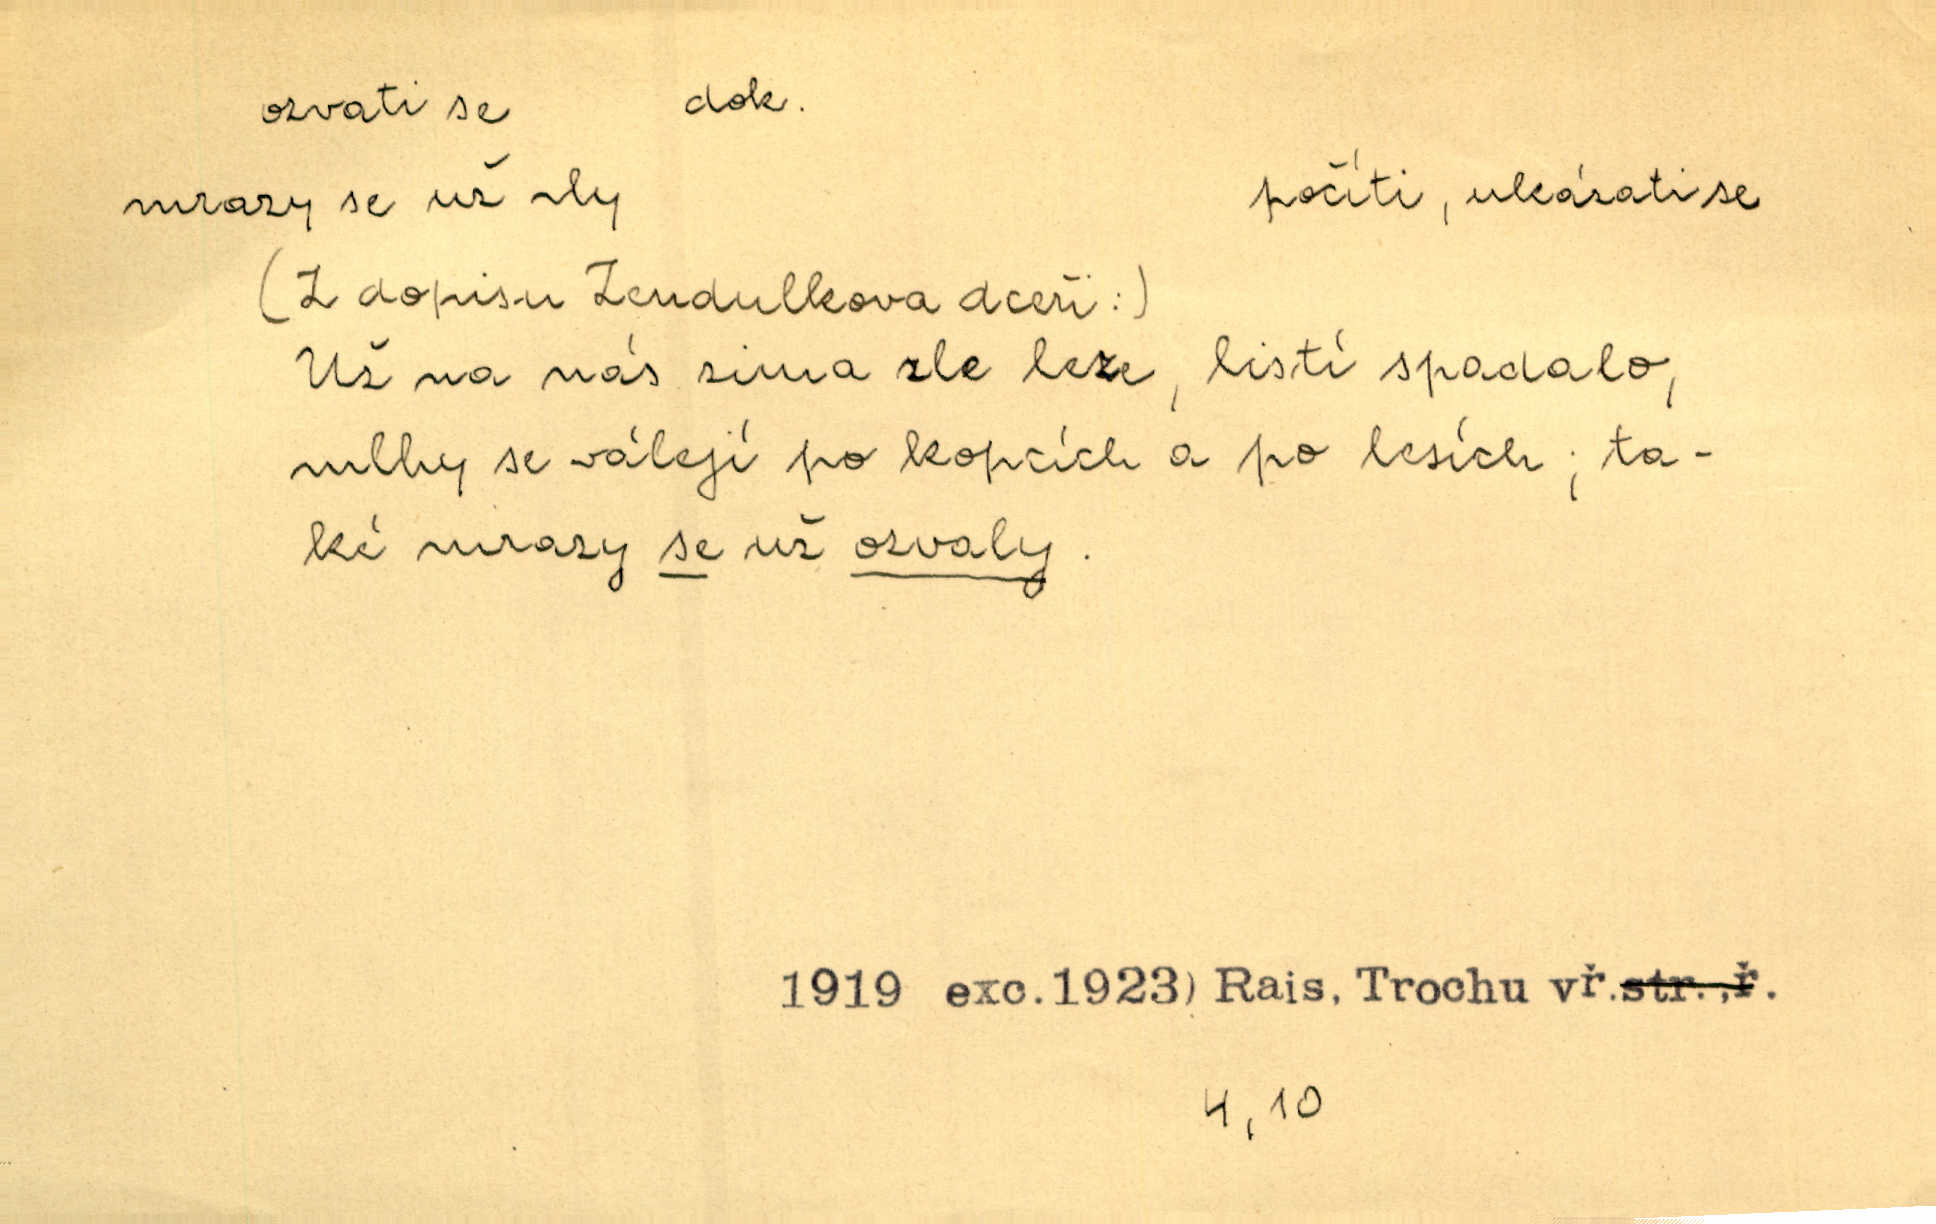 ozvati se dok.
mrazy se už ~ly počíti, ukázati se
(Z dopisu Zendulkova dceři:)
Už na nás zima zle leze, listí spadalo,
mlhy se válejí po kopcích a po lesích; ta-
ké mrazy se už ozvaly.
1919 exc.1923) Rais, Trochu vř.str.,ř.
4,10